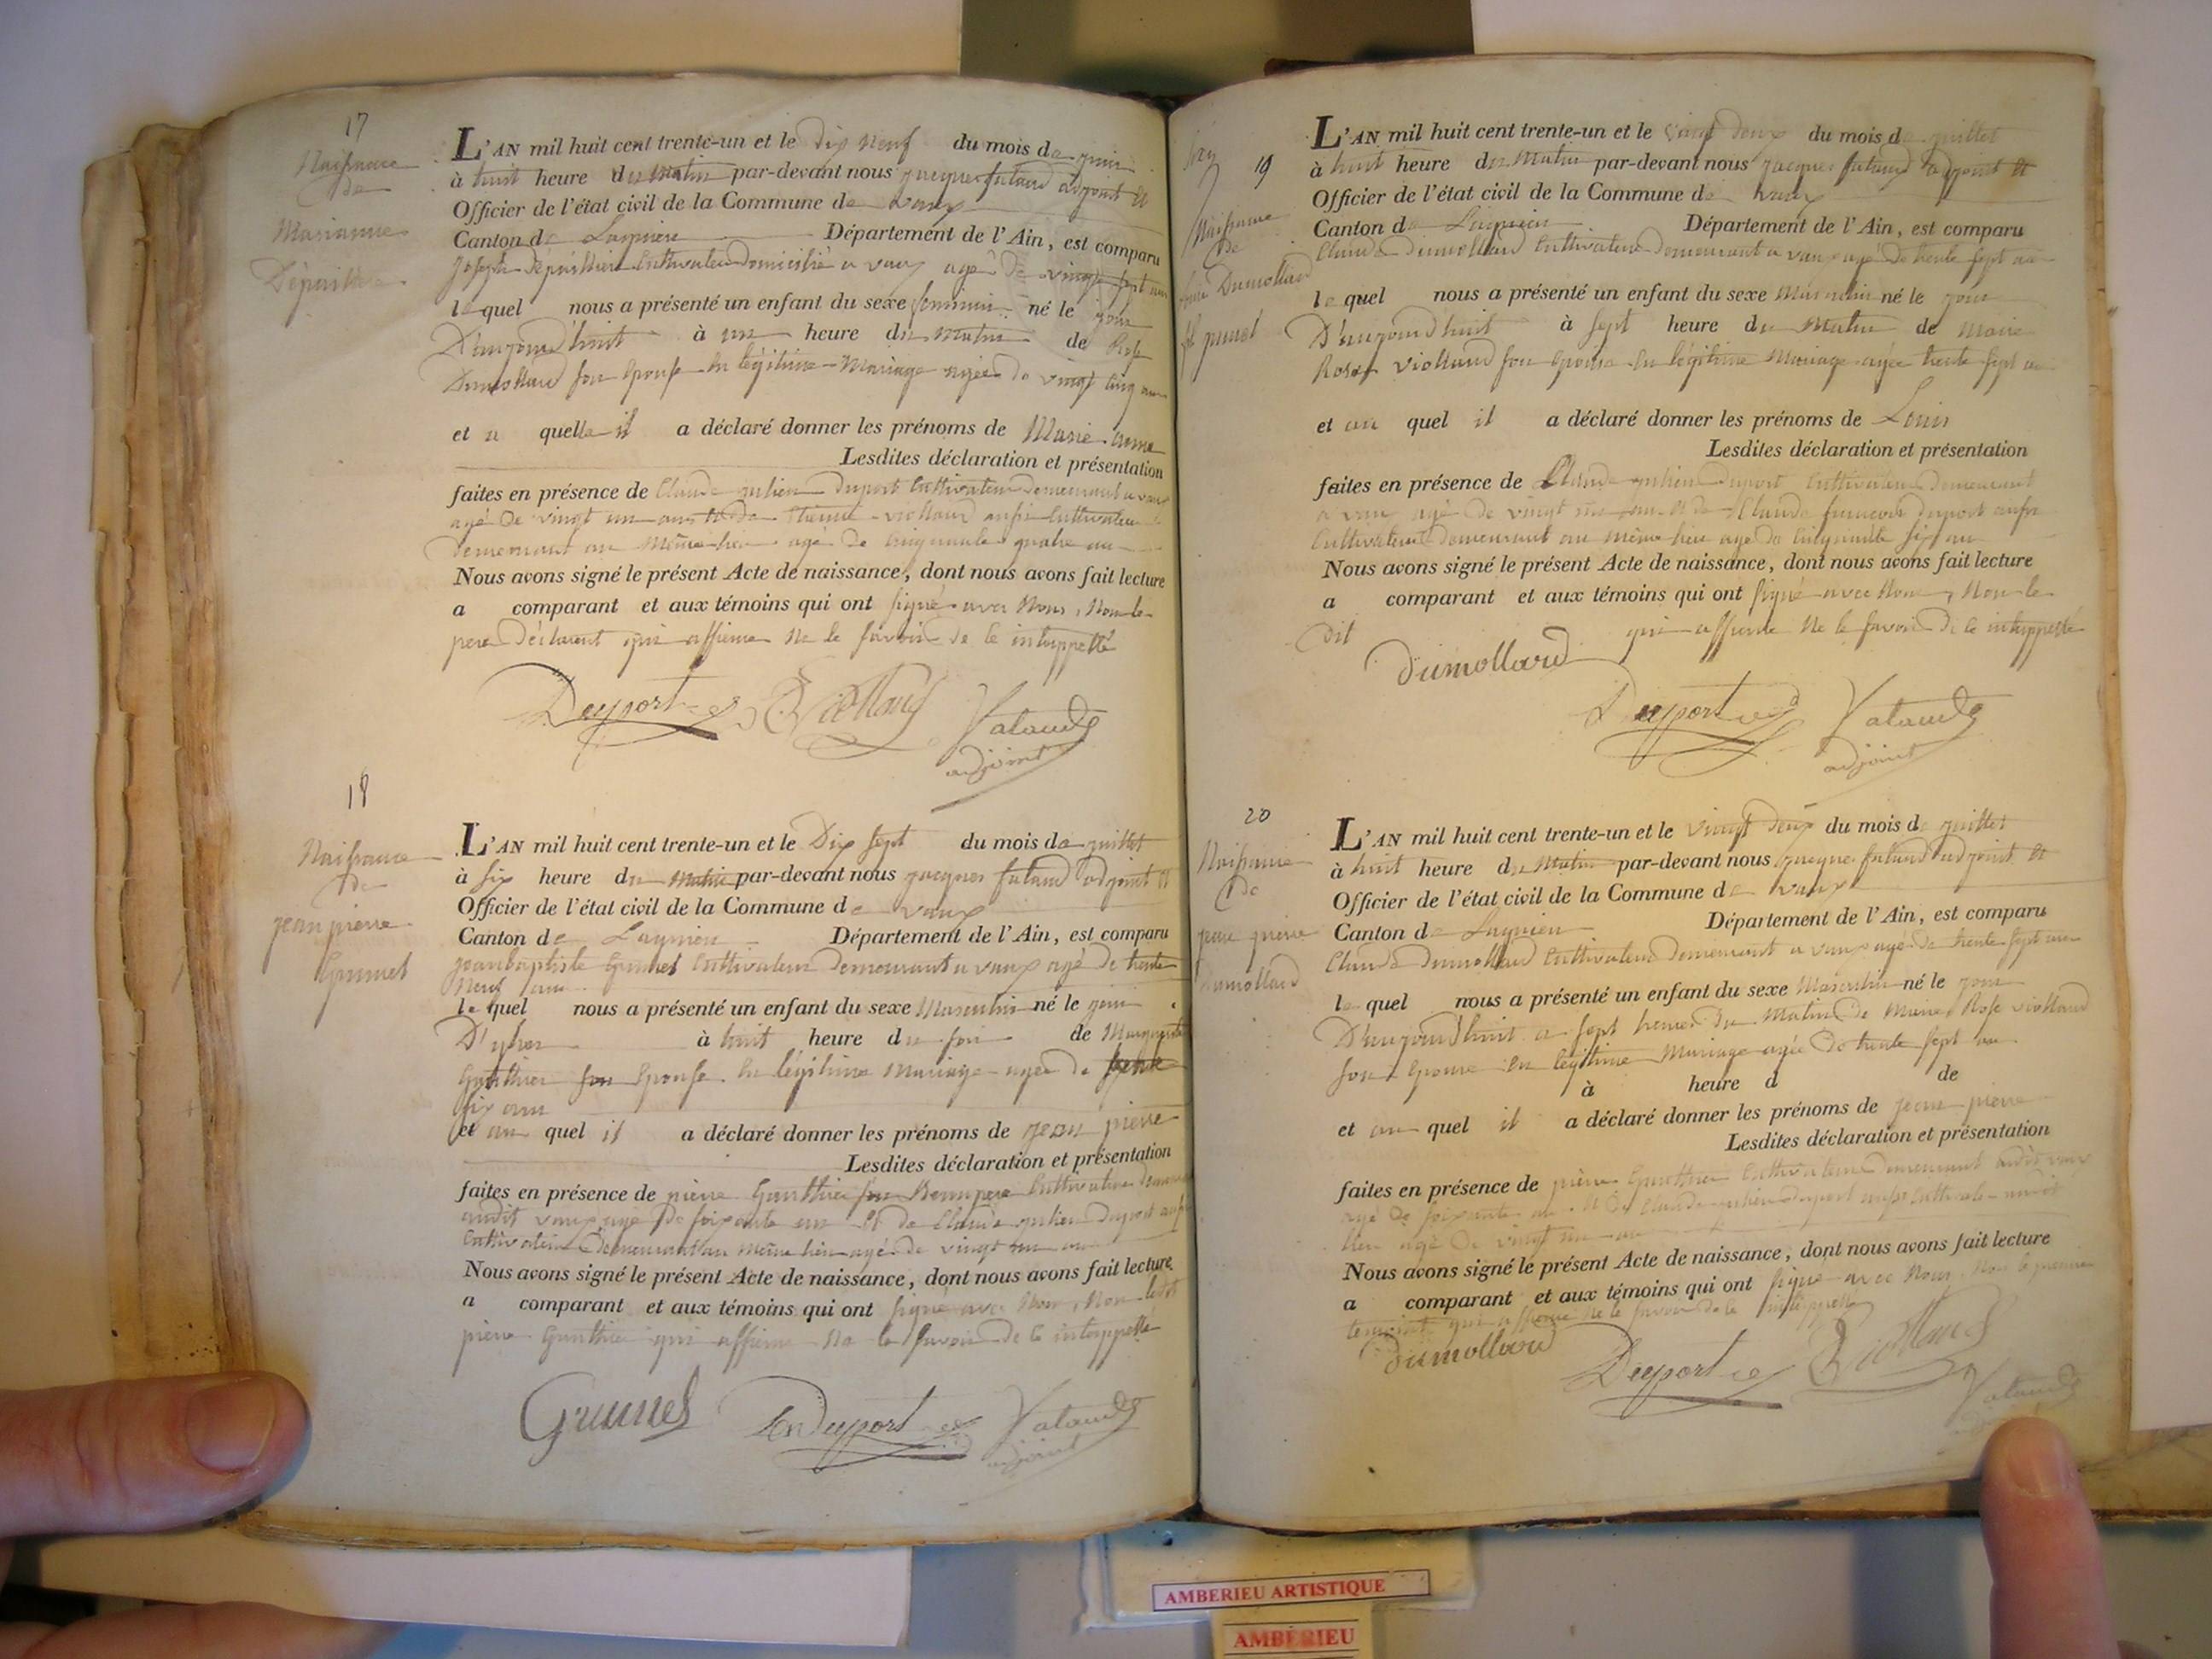 17
Naissance
de
Marianne
Dépaillere
L'AN mil huit cent trente-un et le dix neuf du mois de juin
à huit heure du Matin par-devant nous jacques falaud adjoint et
Officier de l'état civil de la Commune de vaux
Canton de Lagnieu Département de l'Ain, est comparu
Joseph Cultivateur domicilié a vaux agé de vingt sept ans
le quel nous a présenté un enfant du sexe feminin né le jour
D'aujourd'huit à un heure du Matin de Rose
Dumollard son Epouse En légitime Mariage agée de vingt cinq ans
et a quelle il a déclaré donner les prénoms de Marie anne
Lesdites déclaration et présentation
faites en présence de Claude julien duport Cultivateur demeurant a vaux
agé De vingt un ans et de Etienne viollaud aussi Cultivateur
demeurant au même lieu agé de cinquante quatre an
Nous avons signé le présent Acte de naissance, dont nous avons fait lecture
a comparant et aux témoins qui ont signé avec Nous, Non le
pere déclarent qui affirme Ne le savoir de ce intreppellé
Duport
Viollaud
falaud
adjoint
18
Naissance
de
jean pierre
Grumet
L'AN mil huit cent trente-un et le Dix sept du mois de juillet
à six heure du Matin par-devant nous jacques falaud adjoint et
Officier de l'état civil de la Commune de vaux
Canton de Lagnieu Département de l'Ain, est comparu
jean baptiste Grumet Cultivateur demeurant a vaux agé de trente
Neuf ans
le quel nous a présenté un enfant du sexe Masculin né le jour
D'yher à huit heure du soir de Marguerite
Gauthier son Epouse En légitime Mariage agée de
six ans
et au quel il a déclaré donner les prénoms de jean pierre
Lesdites déclaration et présentation
faites en présence de pierre Gauthier son Beaupere Cultivateur
audit vaux agé de soixante an et de Claude julien duport aussi
Cultivateur demeurant au même lieu agé de vingt un an
Nous avons signé le présent Acte de naissance, dont nous avons fait lecture
a comparant et aux témoins qui ont signé avec Nous, Non ledit
pierre Gauthier qui affirme Ne le savoir de ce intreppellé
Grumet
Duport
falaud
adjoint
19
Naissance
de
Dumollard
L'AN mil huit cent trente-un et le vingt deux du mois de juillet
à huit heure du Matin par-devant nous jacques falaud adjoint et
Officier de l'état civil de la Commune de vaux
Canton de Lagnieu Département de l'Ain, est comparu
Claude dumollard Cultivateur demeurant a vaux agé de trente sept an
le quel nous a présenté un enfant du sexe Masculin né le jour
D'aujourd'huit à sept heure du Matin de Marie
Rose viollaud son Epouse En légitime Mariage agée trente sept an
et au quel il a déclaré donner les prénoms de Louis
Lesdites déclaration et présentation
faites en présence de Claude julien duport Cultivateur demeurant
a vaux agé de vingt un ans et de Claude francois duport aussi
Cultivateur demeurant au même lieu agé de Cinquante six an
Nous avons signé le présent Acte de naissance, dont nous avons fait lecture
a comparant et aux témoins qui ont signé avec Nous, Non le
dit qui affirme Ne le savoir de ce intreppellé
dumollard
Duport
falaud
adjoint
20
Naissance
de
jean pierre
Dumollard
L'AN mil huit cent trente-un et le vingt deux du mois de juillet
à huit heure du Matin par-devant nous jacques falaud adjoint et
Officier de l'état civil de la Commune de vaux
Canton de Lagnieu Département de l'Ain, est comparu
Claude dumollard Cultivateur demeurant a vaux agé de trente sept ans
le quel nous a présenté un enfant du sexe Masculin né le jour
D'aujourd'huit a sept heures du Matin de Marie Rose viollaud
son Epouse En légitime Mariage agée De trente sept an
à heure d de
et au quel il a déclaré donner les prénoms de jean pierre
Lesdites déclaration et présentation
faites en présence de pierre Gauthier Cultivateur demeurant audit vaux
agé De soixante an et de Claude julien duport aussi audit
lieu agé De vingt un an
Nous avons signé le présent Acte de naissance, dont nous avons fait lecture
a comparant et aux témoins qui ont signé avec Nous, Non le premier
temoint qui affirme Ne le savoir de ce intreppellé
dumollard
Duport
Viollaud
falaud
AMBERIEU ARTISTIQUE
AMBÉRIEU